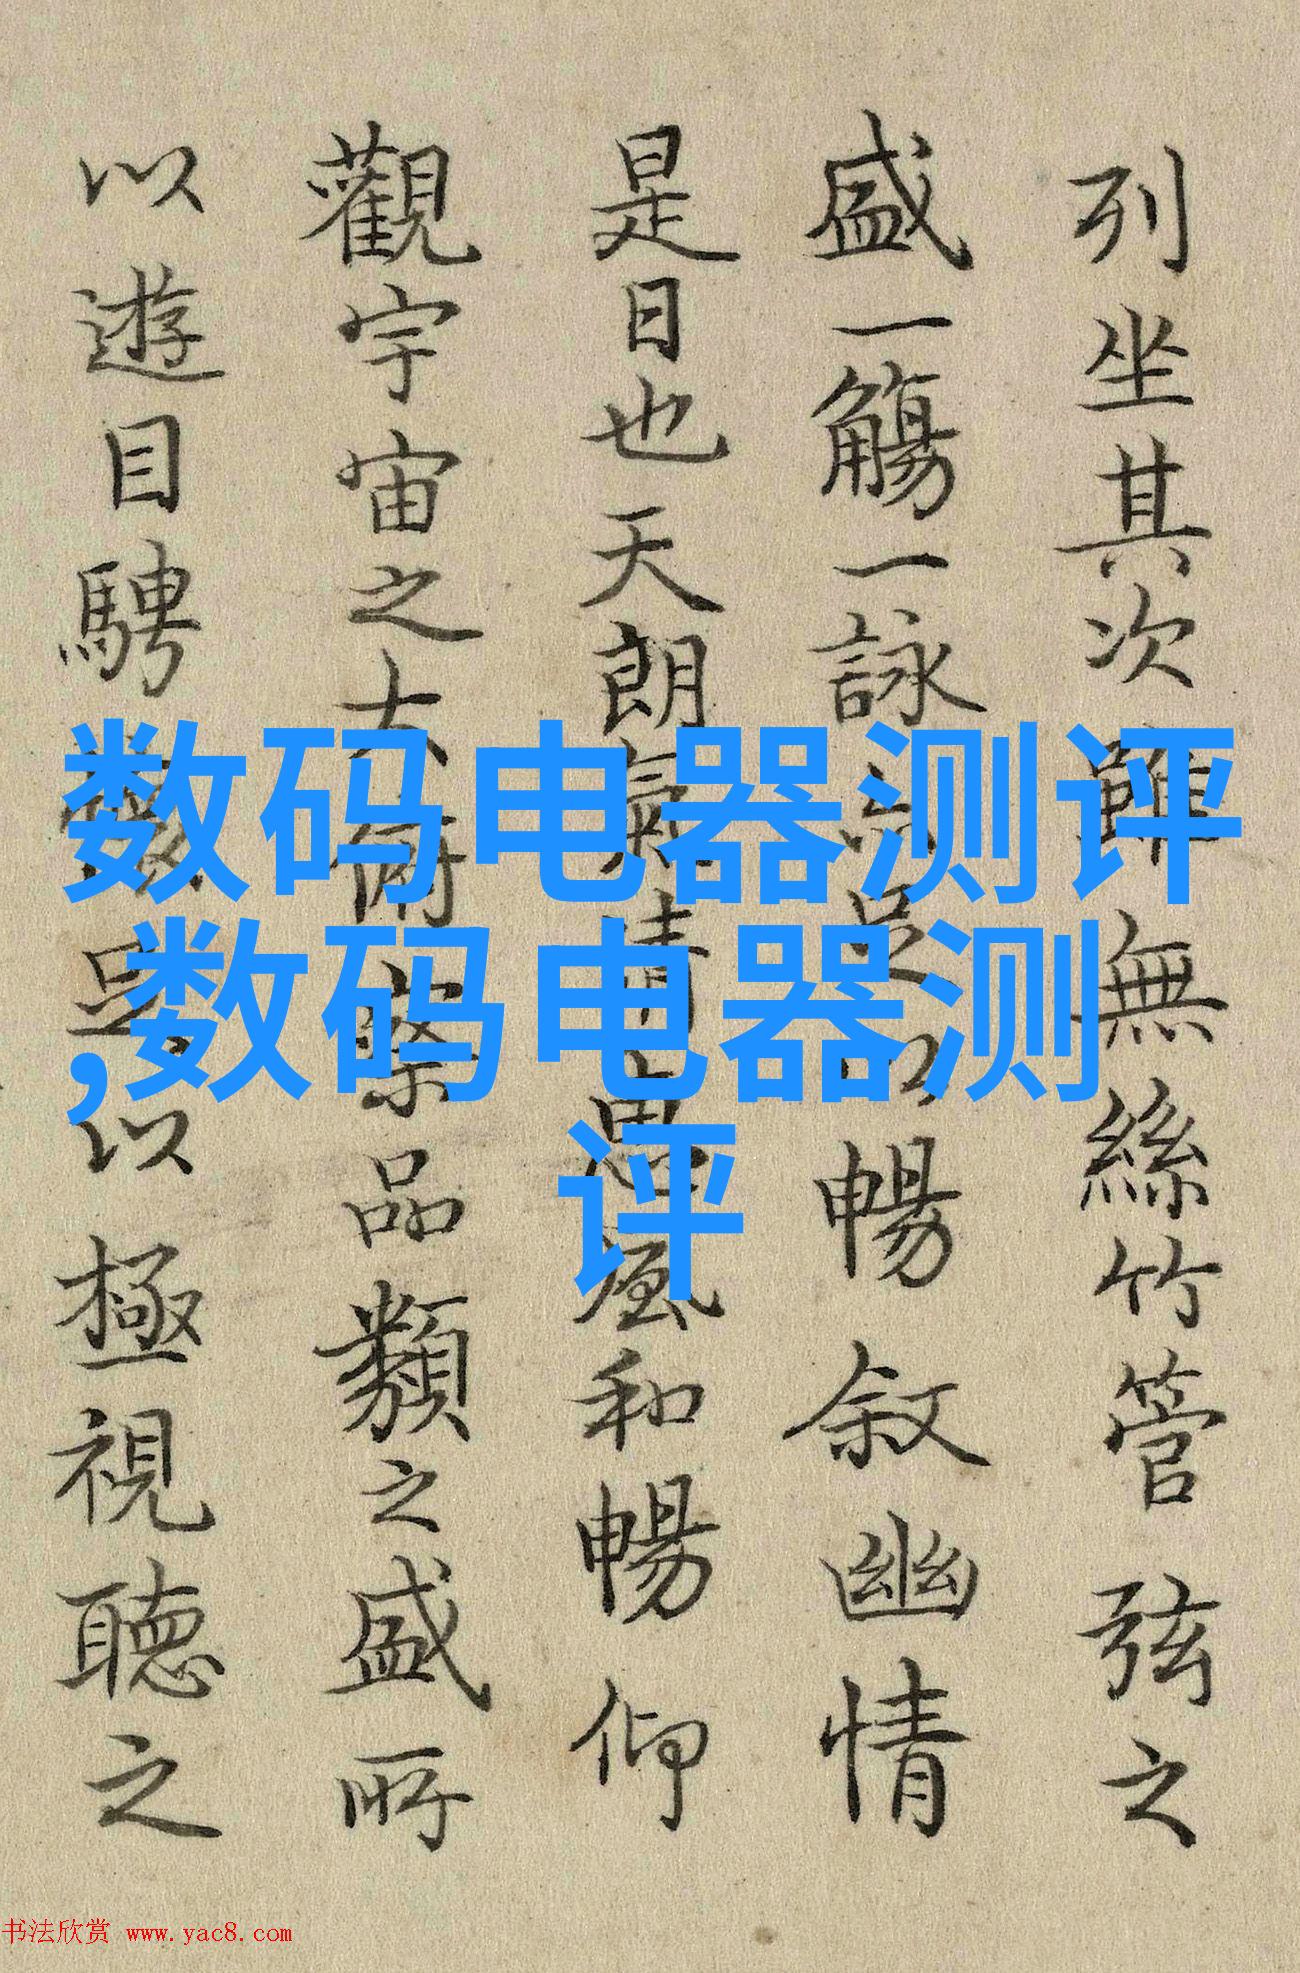 列坐其次雖無絲竹管弦之
盛一觴一詠亦足以暢叙幽情
是日也天朗氣清惠風和暢仰
觀宇宙之大俯察品類之盛所
以遊目騁懷足以極視聽之
数码电器测评
,数码电器测
评
书法欣赏 www.yac8.com